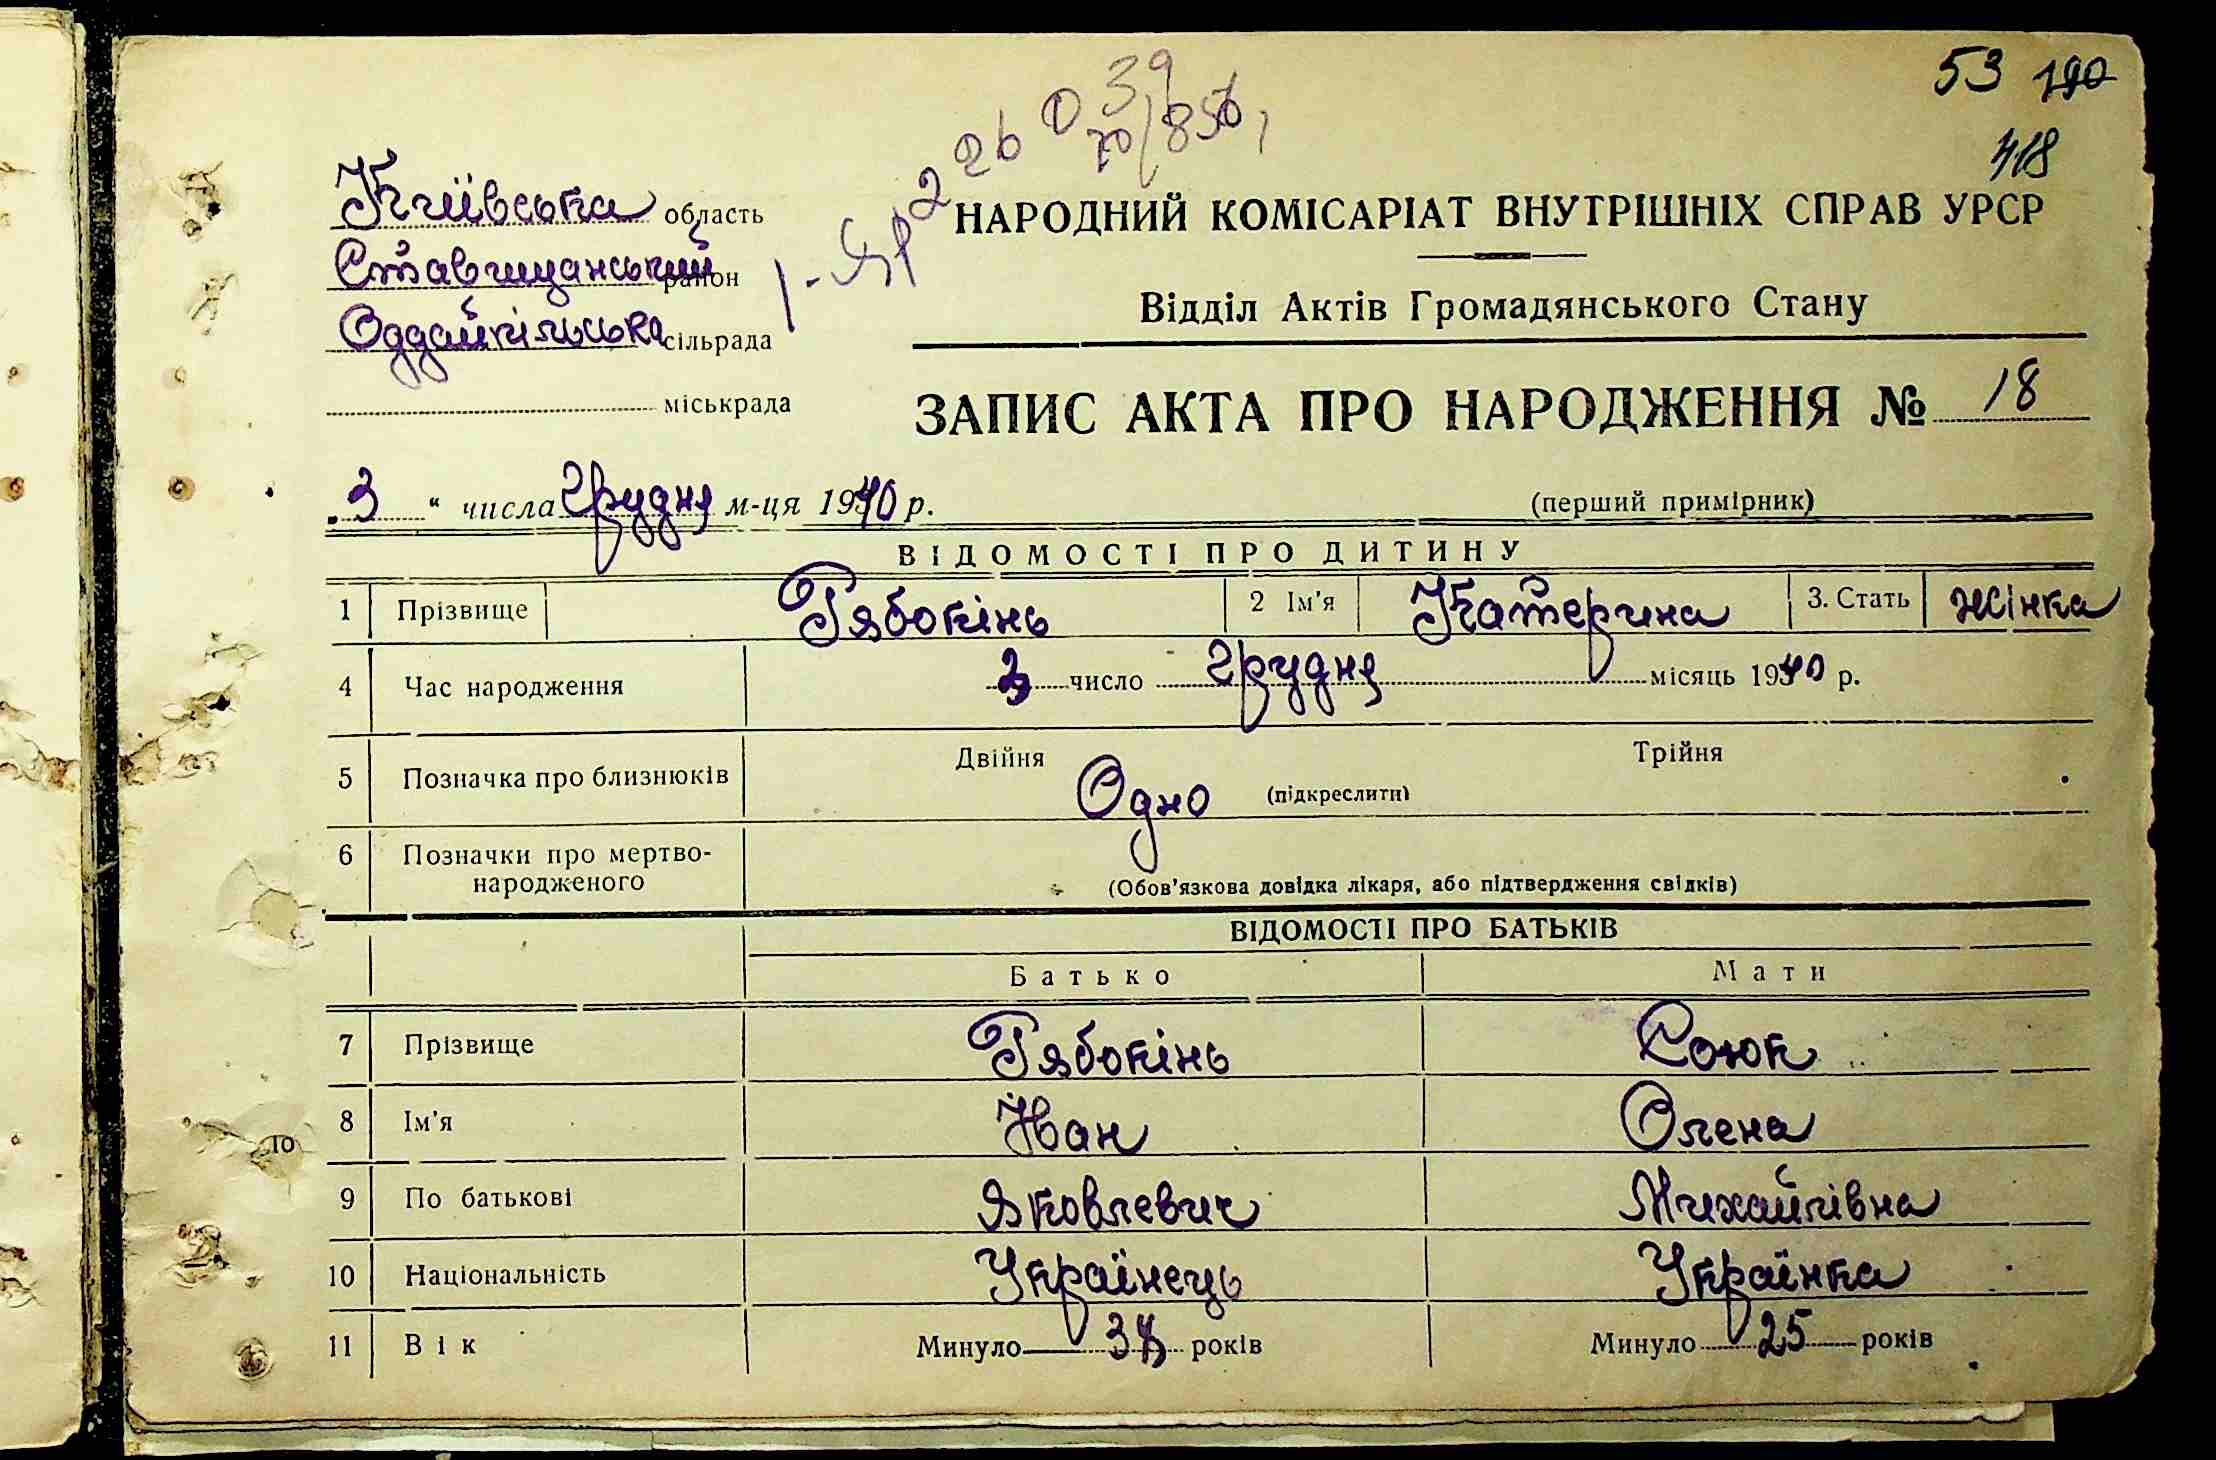 53 190
418
39
2 26 0 70/856,
Київська область
НАРОДНИЙ КОМІСАРІАТ ВНУТРІШНІХ СПРАВ УРСР
Ставищанський район
Відділ Актів Громадянського Стану
Оддайпільська сільрада
міськрада
ЗАПИС АКТА ПРО НАРОДЖЕННЯ № 18
3 " числа Грудня м-ця 1940 р.
(перший примірник)
ВІДОМОСТІ ПРО ДИТИНУ
1 Прізвище Рябокінь 2 Ім'я Катерина 3. Стать жінка
4 Час народження 3 число Грудня місяць 1940 р.
5 Позначка про близнюків Двійня Одно (підкреслити) Трійня
6 Позначки про мертво-
народженого (Обов'язкова довідка лікаря, або підтвердження свідків)
ВІДОМОСТІ ПРО БАТЬКІВ
Батько Мати
7 Прізвище Рябокінь Союк
8 Ім'я Іван Олена
9 По батькові Яковлевич Михайлівна
10 Національність Українець Українка
11 Вік Минуло 34 років Минуло 25 років
10